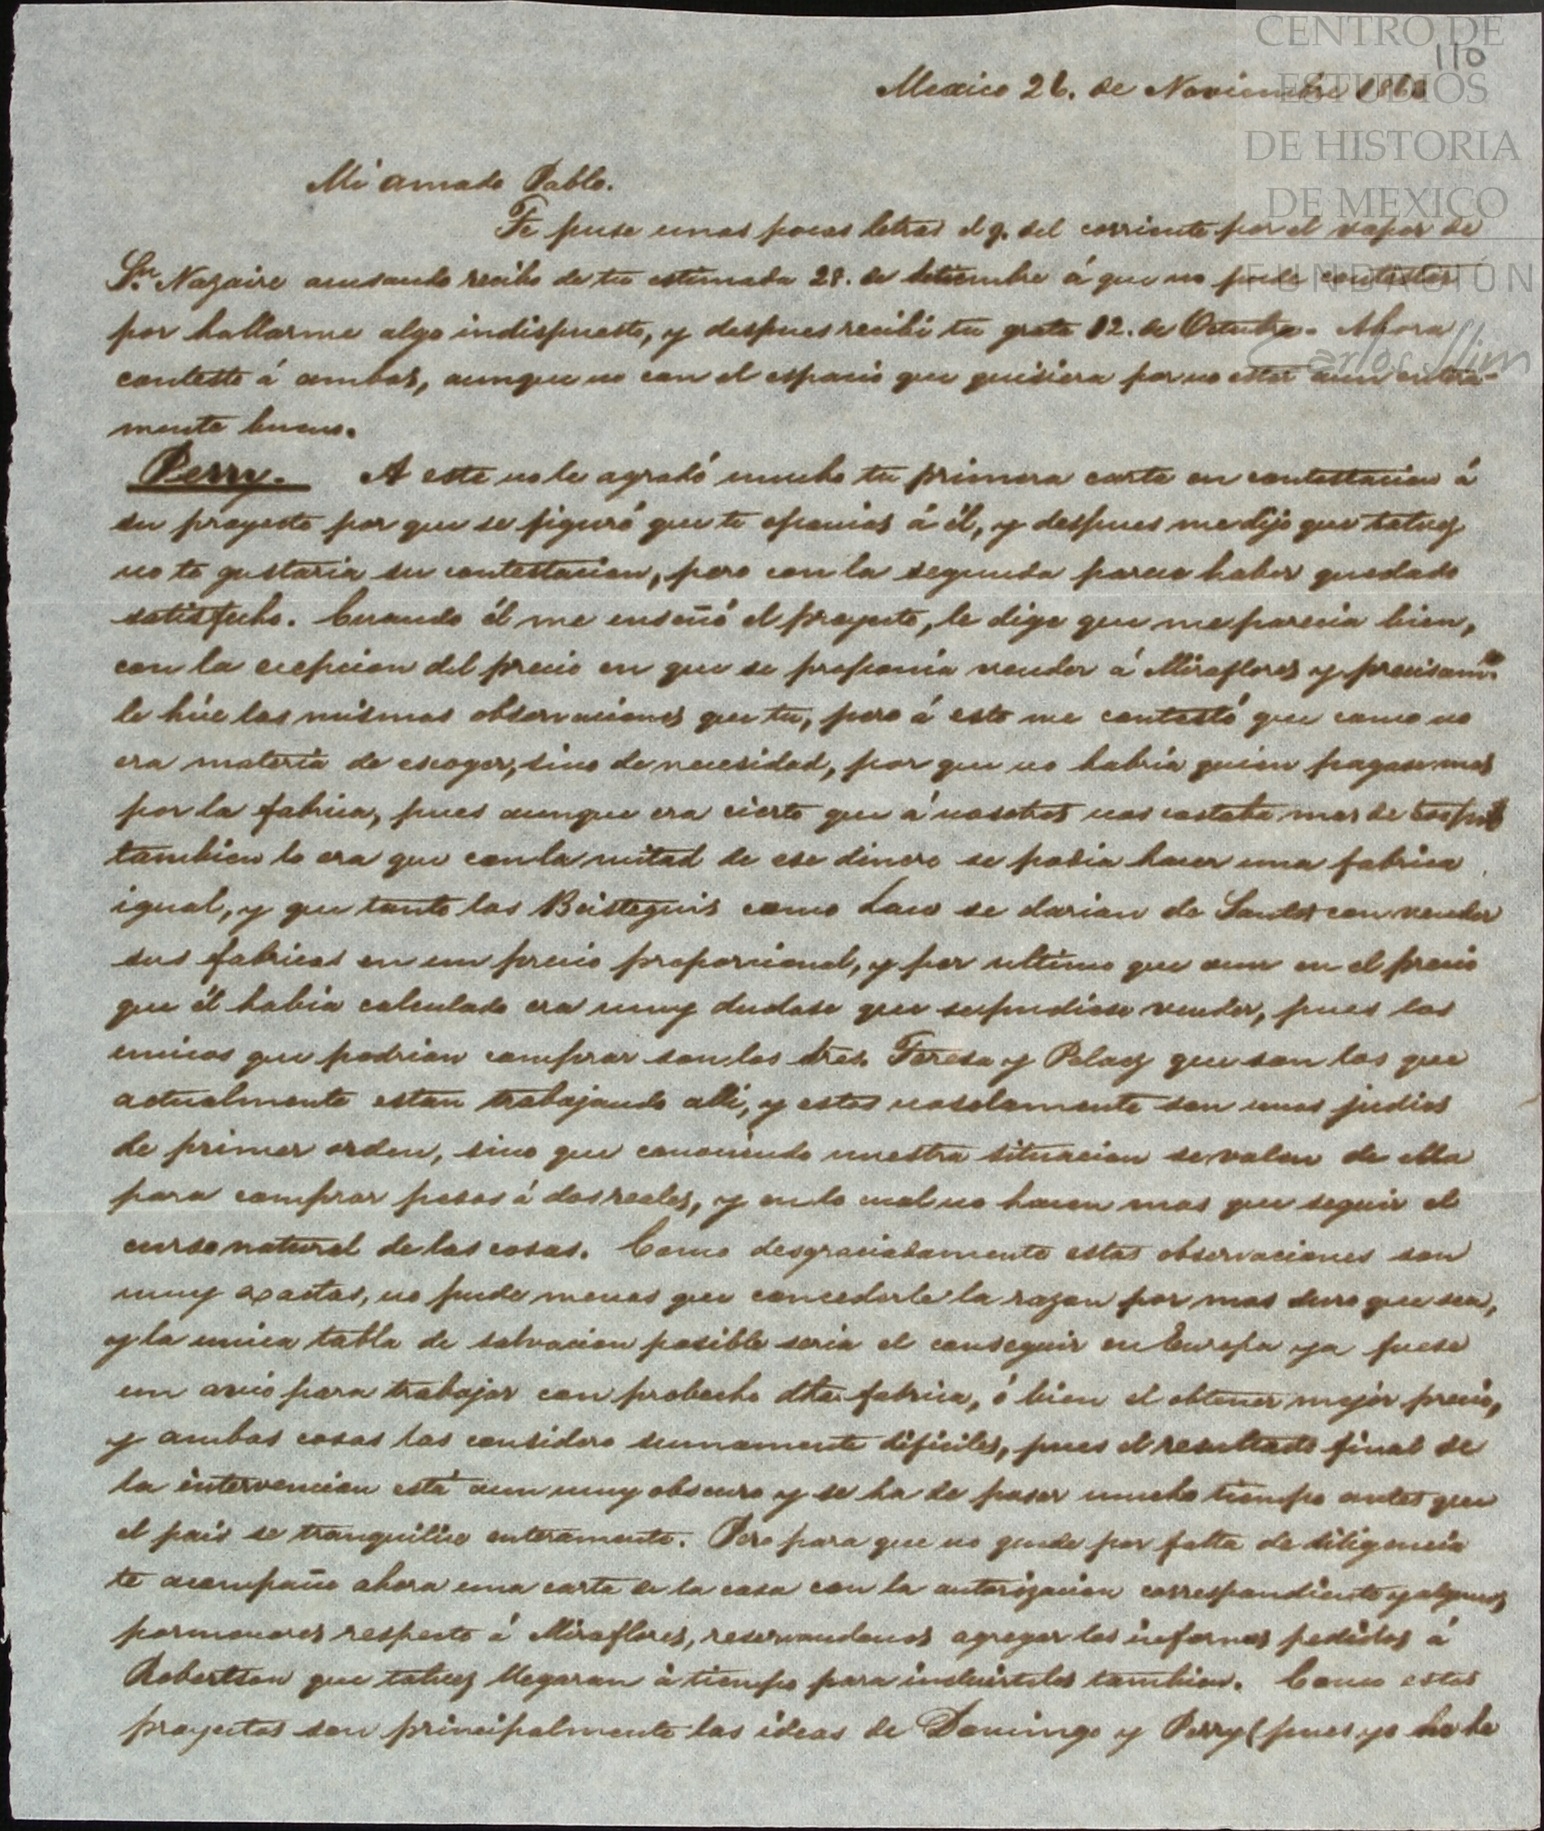 CENTRO DE
ESTUDIOS
DE HISTORIA
DE MEXICO
FUNDACIÓN
Carlos Slim
110
Mexico 26. de Noviembre 186
Mi amado Pablo.
Te puse unas pocas letras el 9. del corriente por el vapor de
Sn. Nazaire acusando recibo de tu estimada 28. de Setiembre á que no pude contestar
por hallarme algo indispuesto, y despues recibí tu grata 12. de Octubre. Ahora
contesto á ambas, aunque no con el espacio que quisiera por no estar aun entera-
mente bueno.
Perry. A este no le agradó mucho tu primera carta en contestacion á
su proyecto por que se figuró que te oponias á él, y despues me dijo que talvez
no te gustaria su contestacion, pero con la segunda parece haber quedado
satisfecho. Cuando él me enseñó el proyecto, le dige que me parecia bien,
con la ecepcion del precio en que se proponia vender á Miraflores y precisamte
le hice las mismas observaciones que tu, pero á esto me contestó que como no
era materia de escoger, sino de necesidad, por que no habria quien pagase mas
por la fabrica, pues aunque era cierto que á nosotros nos costaba mas de
tambien lo era que con la mitad de ese dinero se podia hacer una fabrica
igual, y que tanto los Beisteguis como Laus se darian de Santos con vender
sus fabricas en un precio proporcional, y por ultimo que aun en el precio
que él habia calculado era muy dudoso que se pudiese vender, pues los
unicos que podrian comprar son los Sres. Teresa y Pelaez que son los que
actualmente estan trabajando alli, y estos no solamente son unos judios
de primer orden, sino que conociendo nuestra situacion se valen de ella
para comprar pesos á dos reales, y en lo cual no hacen mas que seguir el
curso natural de las cosas. Como desgraciadamente estas observaciones son
muy exactas, no pude menos que concederle la razon por mas duro que sea,
y la unica tabla de salvacion posible seria el conseguir en Europa ya fuese
un avio para trabajar con probecho dha. fabrica, ó bien el obtener mejor precio,
y ambas cosas las considero sumamente dificiles, pues el resultado final de
la intervencion está aun muy obscuro y se ha de pasar mucho tiempo antes que
el pais se tranquilice enteramente. Pero para que no quede por falta de diligencia
te acompaño ahora una carta de la casa con la autorizacion correspondiente y algunos
pormenores respecto á Miraflores, reservandonos agregar los informes pedidos á
Robertson que talvez llegaran á tiempo para incluirtelos tambien. Como estos
proyectos son principalmente las ideas de Domingo y Perry (pues yo he